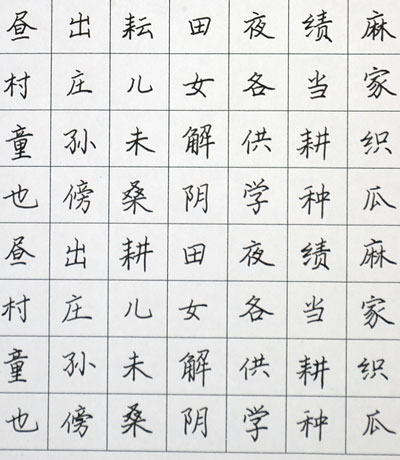 昼出耘田夜绩麻
村庄儿女各当家
童孙未解供耕织
也傍桑阴学种瓜
昼出耕田夜绩麻
村庄儿女各当家
童孙未解供耕织
也傍桑阴学种瓜